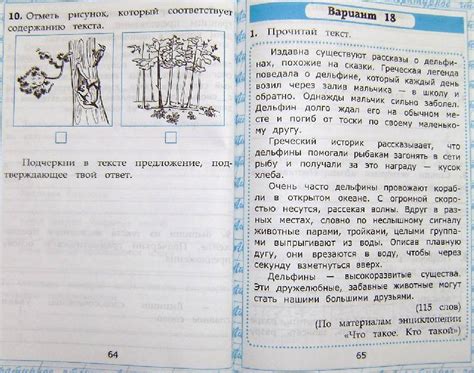 10. Отметь рисунок, который соответствует
содержанию текста.
Подчеркни в тексте предложение, под-
тверждающее твой ответ.
64
Вариант 18
1. Прочитай текст.
Издавна существуют рассказы о дельфи-
нах, похожие на сказки. Греческая легенда
поведала о дельфине, который каждый день
возил через залив мальчика — в школу и
обратно. Однажды мальчик сильно заболел.
Дельфин долго ждал его на обычном ме-
сте и погиб от тоски по своему маленько-
му другу.
Греческий историк рассказывает, что
дельфины помогали рыбакам загонять в сети
рыбу и получали за это награду — кусок
хлеба.
Очень часто дельфины провожают кораб-
ли в открытом океане. С огромной скоро-
стью несутся, рассекая волны. Вдруг в раз-
ных местах, словно по неслышному сигналу
животные парами, тройками, целыми группа-
ми выпрыгивают из воды. Описав плавную
дугу, они врезаются в воду, чтобы через
секунду взметнуться вверх.
Дельфины — высокоразвитые существа.
Эти дружелюбные, забавные животные могут
стать нашими большими друзьями.
(115 слов)
(По материалам энциклопедии
«Что такое. Кто такой»)
65